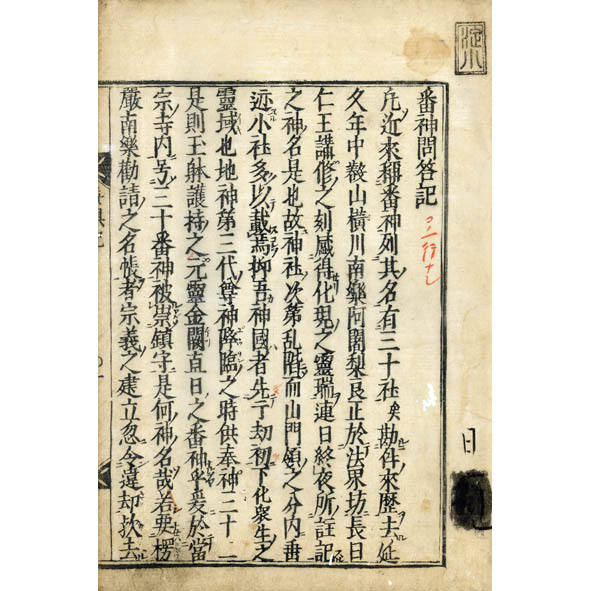 番神問答記
凡近來稱番神列其名有三十社矣勘件來歷去延
久年中叡山橫川南樂阿闍梨良正於法界坊長日
仁王講修之刻感得化現之靈瑞連日終夜所註記
之神名是也故神社次第乱階而山門領之分内垂
迹小社多以載焉抑吾神國者先于劫初下化衆生之
靈域也地神第三代尊神降臨之時供奉神三十二
是則玉躰護持之元靈金闕直日之番神乎爰於當
宗寺内号三十番神被崇鎮守是何神名哉若要楞
嚴南樂勸請之名帳者宗義之建立忽令違却歟去
日